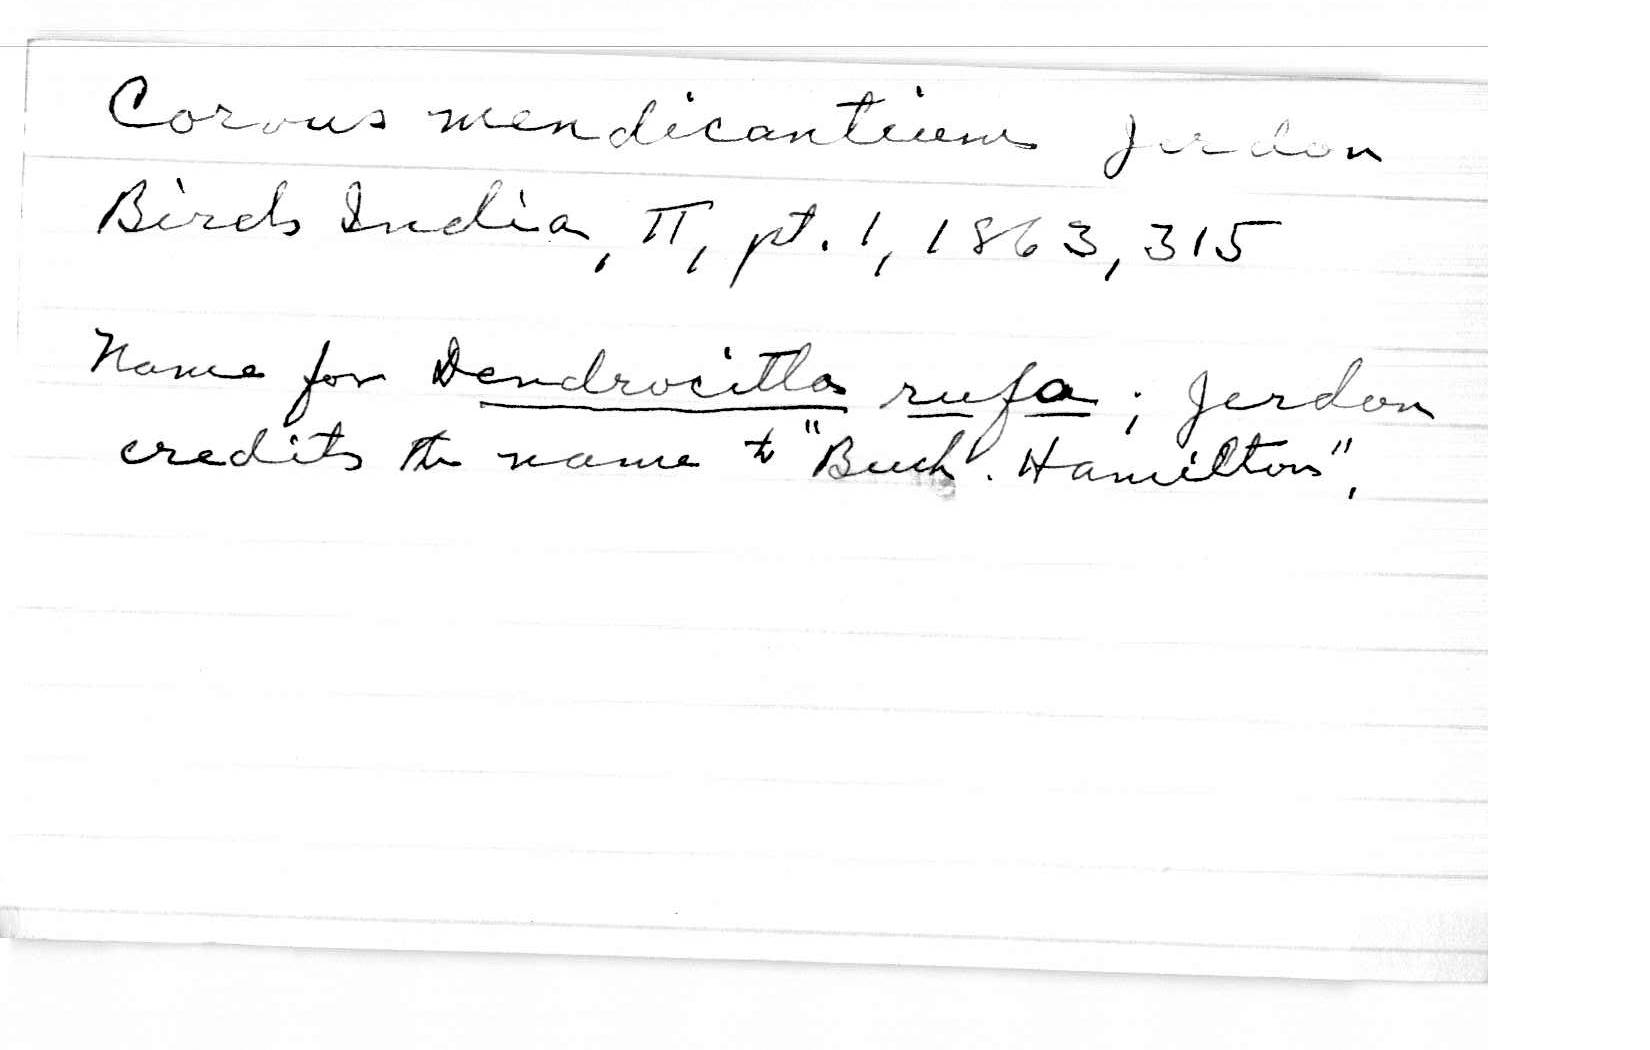 Corvus mendicantium Jerdon
Birds India, II, pt. 1, 1863, 315
Name for Dendrocitta rufa; Jerdon
credits the name to "Buch. Hamilton".